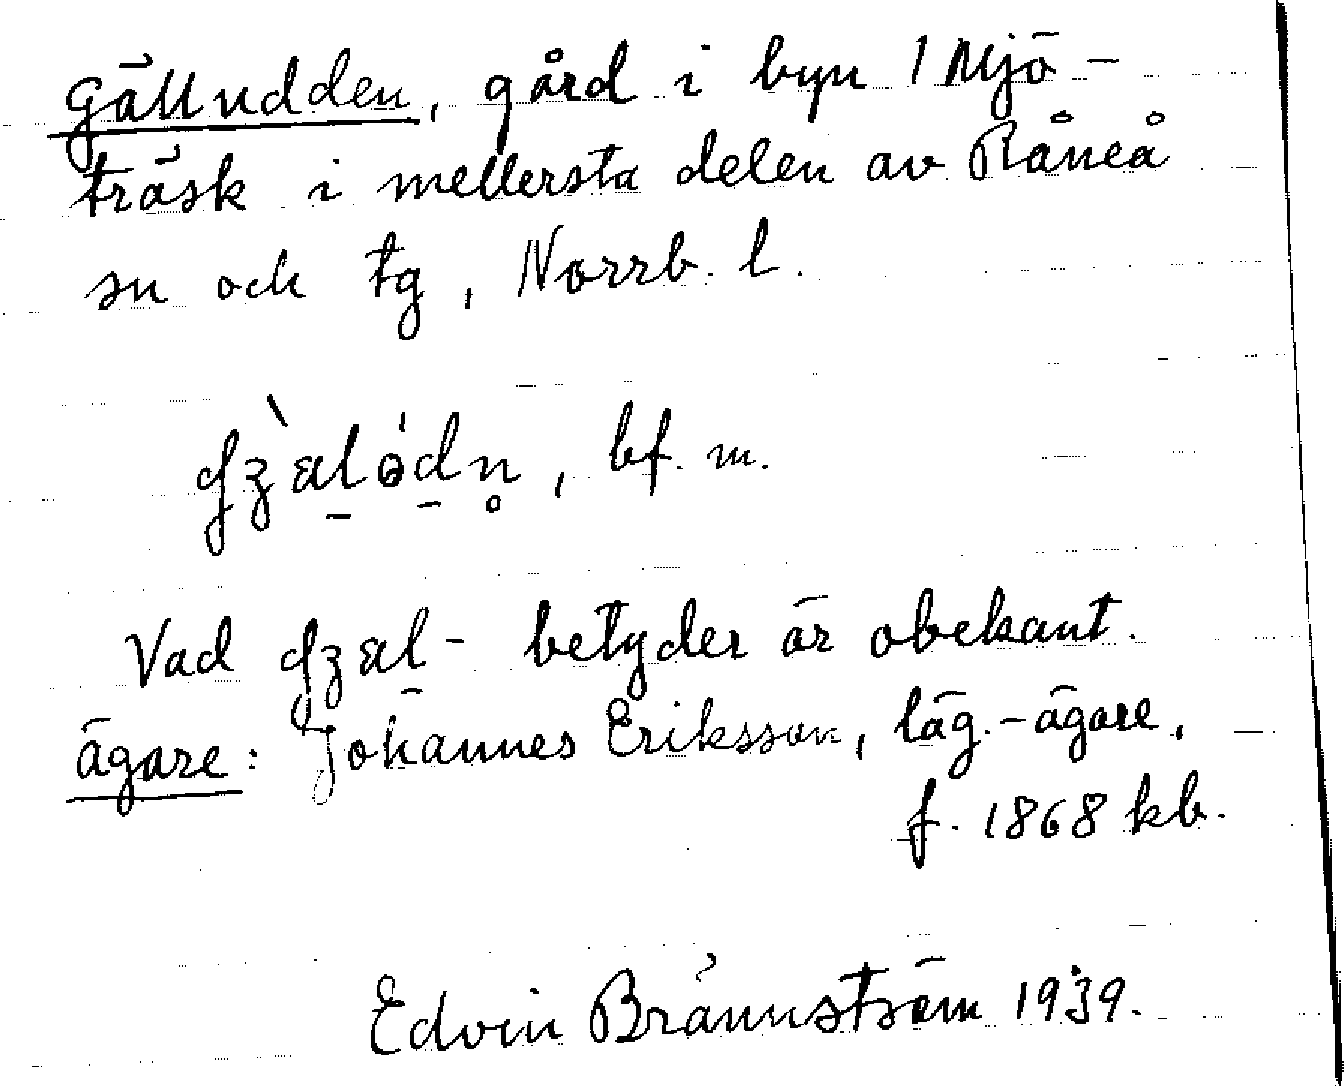 Gälludden, gård i byn 1 Mjö-
träsk i mellersta delen av Råneå
sn och tg, Norrb. l.
bf. m.
Vad betyder är obekant.
ägare: Johannes Eriksson, läg.-ägare,
f. 1868 kb.
Edvin Brännström 1939.